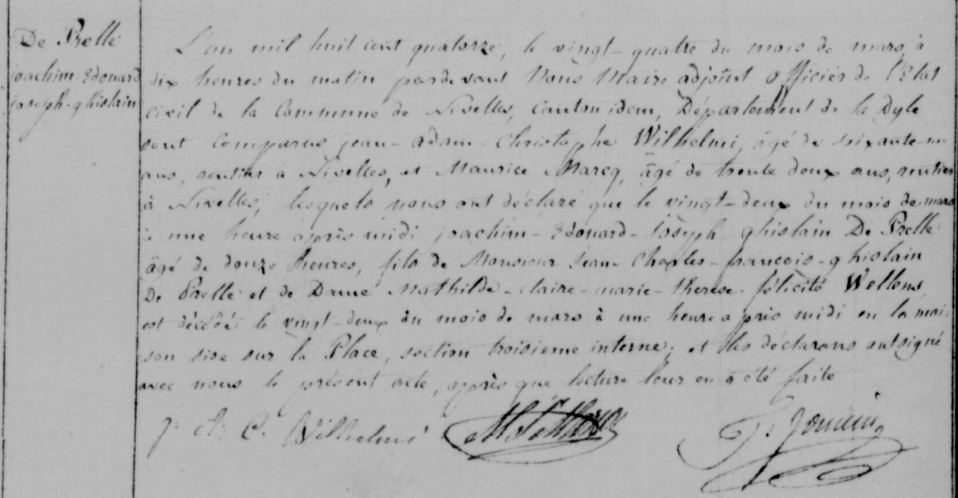 De Prelle
joachim Edouard
joseph-ghislain
L'an mil huit cent quatorze, le vingt-quatre du mois de mars, à
dix heures du matin pardevant Nous Maire adjoint officier de l'Etat
civil de la Commune de Nivelles, Canton idem, Département de la Dyle
sont comparus jean-adam-Christophe Wilhelmi, âgé de soixante-
ans, rentier à Nivelles, et Maurice Marcq, âgé de trente deux ans, rentier
à Nivelles, lesquels nous ont déclaré que le vingt-deux du mois de mars
à une heure après midi joachim-Edouard-Joseph ghislain De Prelle
âgé de douze heures, fils de Monsieur Jean-Charles-françois-ghislain
De Prelle et de Dame Mathilde-claire-marie-therese-félicité Wellens,
est décédé le vingt-deux du mois de mars à une heure après midi en la mai-
son sise sur la Place, section troisieme interne; et les déclarans ont signé
avec nous le présent acte, après que lecture leur en a été faite
J. A. C. Wilhelmi